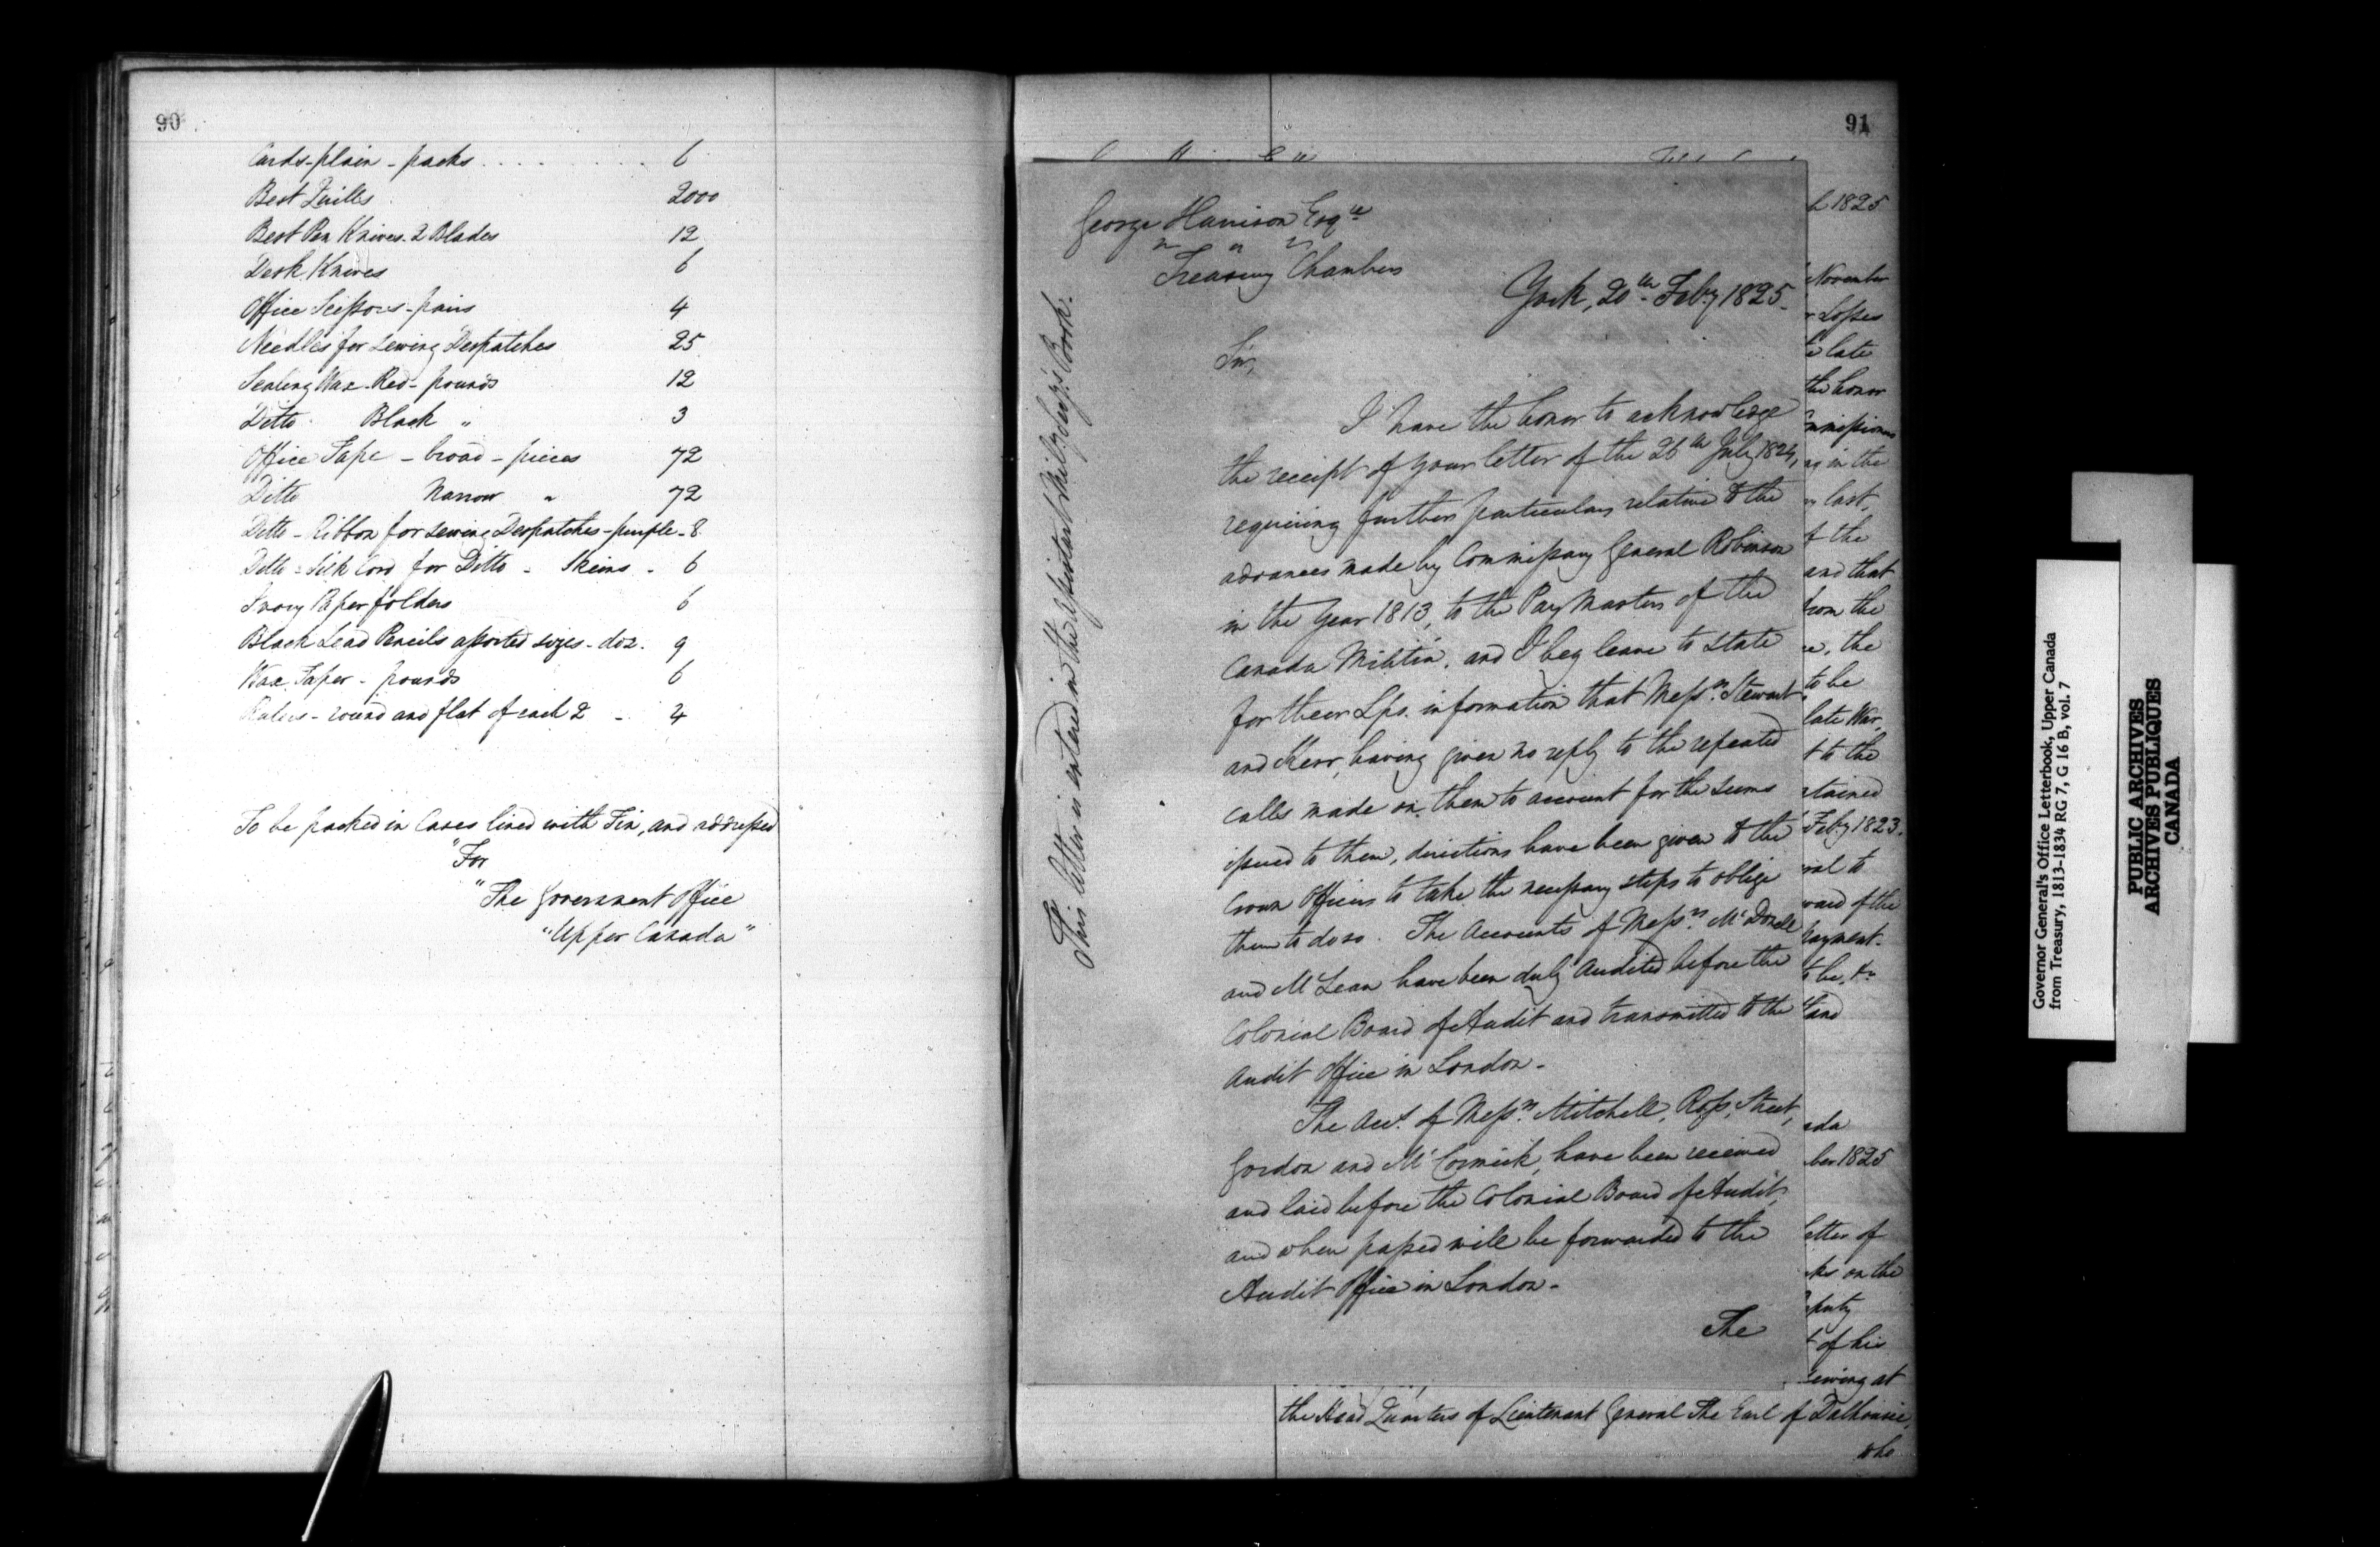 90
Cards - plain - packs . . . . . . 6
Best Quills 2000
Best Pen Knives - 2 Blades 12
Desk Knives 6
Office Scissors - pairs 4
Needles for sewing Despatches 25
Sealing Wax - Red - pounds 12
Ditto Black " 3
Office Tape - broad - pieces 72
Ditto Narrow " 72
Ditto - Ribbon for sewing Despatches - purple - 8
Ditto - Silk Cord for Ditto - Skeins - 6
Ivory Paper folders 6
Black Lead Pencils assorted sizes - doz. 9
Wax Taper - pounds 6
Rulers - round and flat of each 2 - 4
To be packed in Cases lined with Tin, and addressed
"For
"The Government Office
"Upper Canada"
91
George Harrison Esqre
" " "
Treasury Chambers
York, 20th Feby 1825.
Sir,
I have the honor to acknowledge
the receipt of your letter of the 26th July 1824,
requiring further particulars relative to the
advances made by Commissary General Robinson
in the Year 1813, to the Pay Masters of the
Canada Militia, and I beg leave to state
for their Lps. information that Messrs. Stewart
and Kerr, having given no reply to the repeated
calls made on them to account for the sums
issued to them, directions have been given to the
Crown Officers to take the necessary steps to oblige
them to do so. The Accounts of Messrs. McDonell
and McLean have been duly Audited before the
Colonial Board of Audit and transmitted to the
Audit Office in London -
The Acts. of Messrs. Mitchell, Ross, Street,
Gordon and McCormick, have been received
and laid before the Colonial Board of Audit,
and when passed will be forwarded to the
Audit Office in London -
The
This letter is entered in the Assistant Mily. Secy's. Book.
1825
November
Losses
late
the honor
in the
last,
the
and that
from the
the
to be
late War,
to the
Feby 1823.
to
of the
payment.
to be, &c
and
1825
of
on the
of his
at
the Head Quarters of Lieutenant General The Earl of Dalhousie,
who
Governor General's Office Letterbook, Upper Canada
from Treasury, 1813-1834 RG 7, G 16 B, vol. 7
PUBLIC ARCHIVES
ARCHIVES PUBLIQUES
CANADA